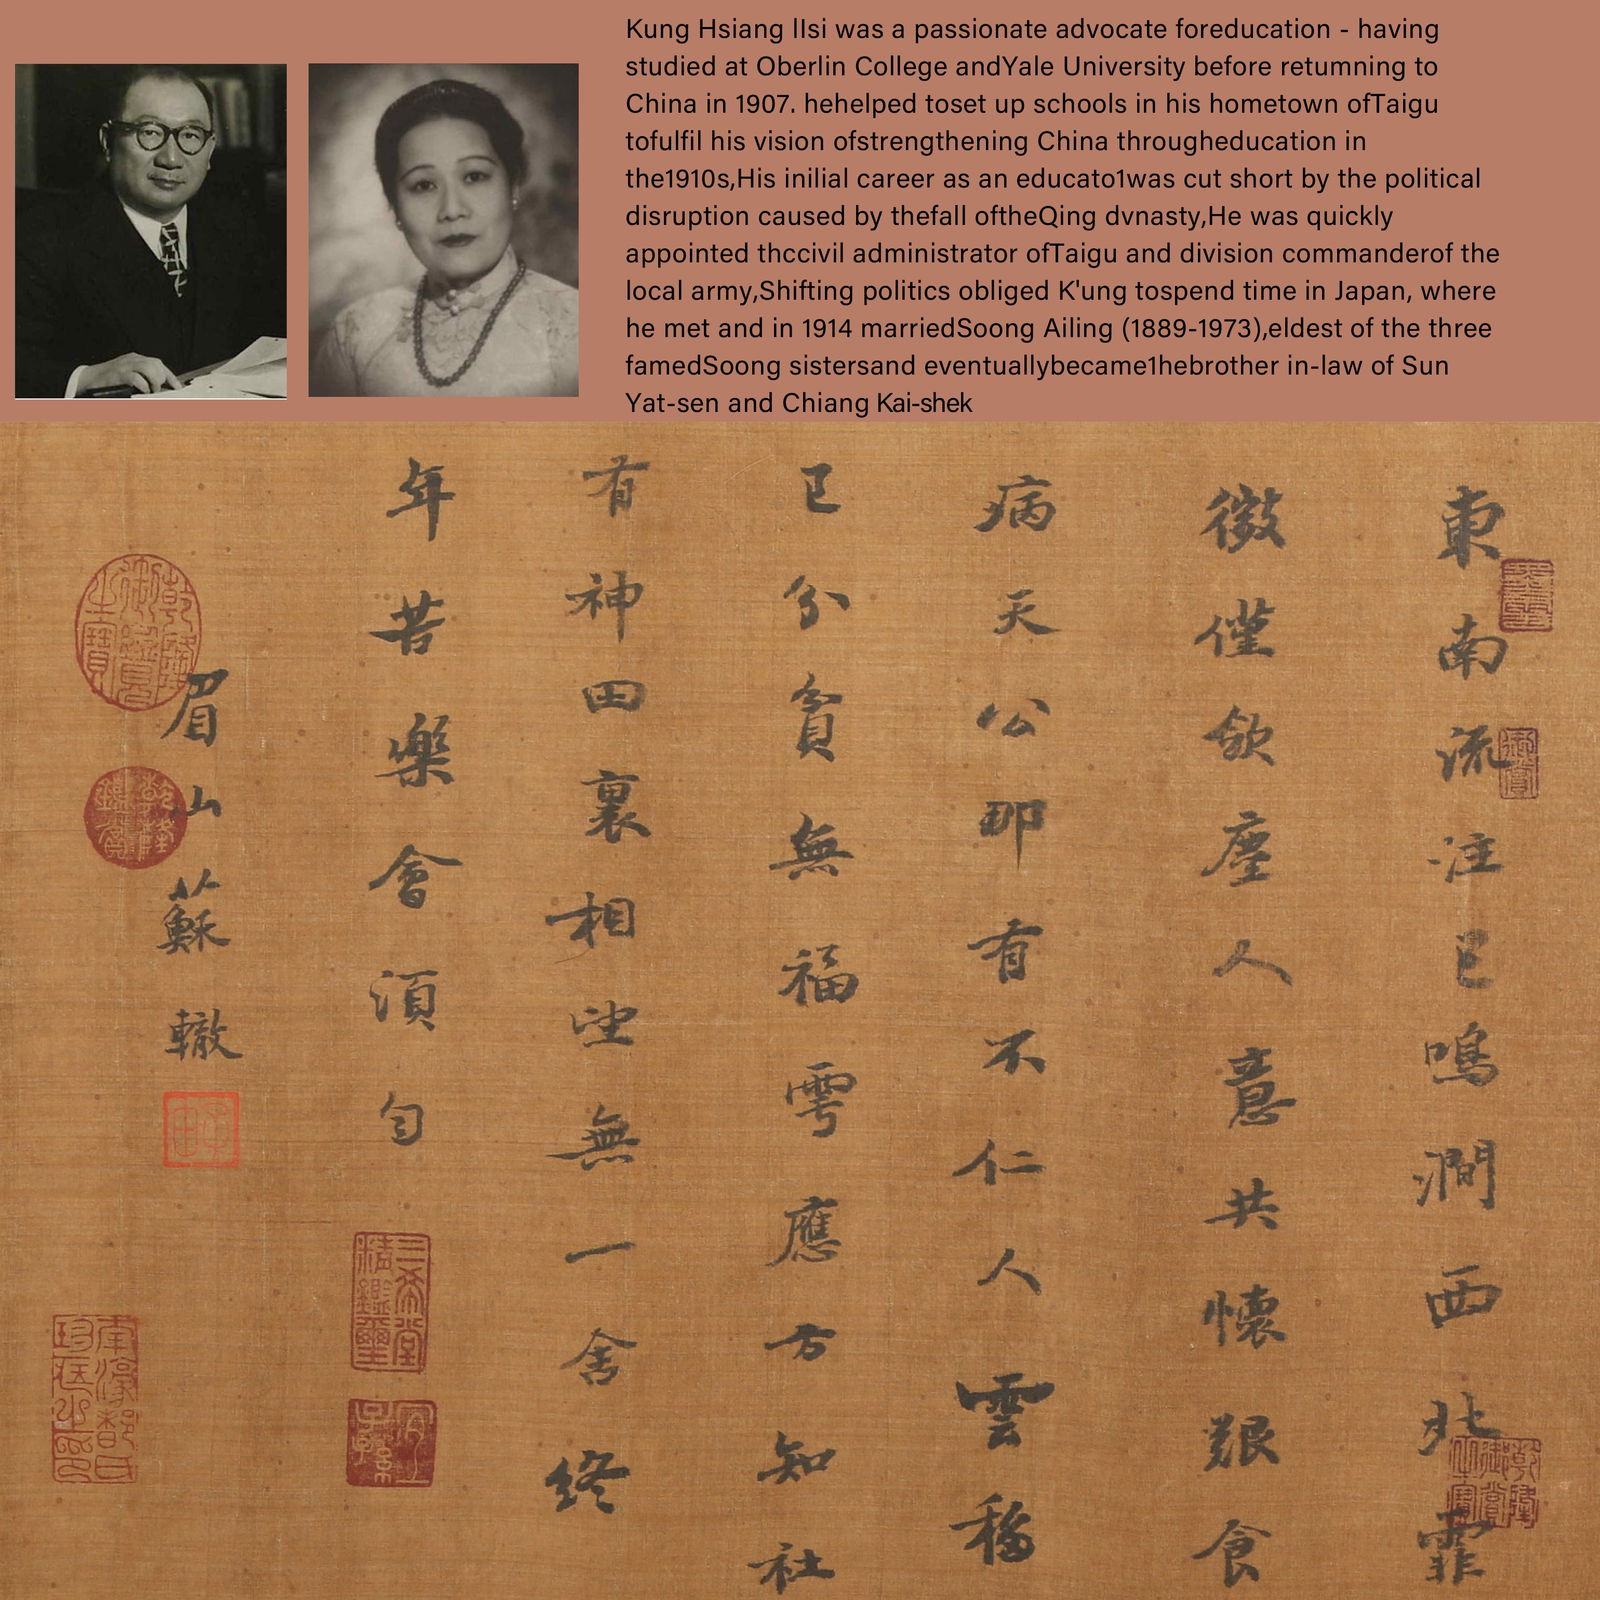 Kung Hsiang lIsi was a passionate advocate foreducation - having
studied at Oberlin College andYale University before retumning to
China in 1907. hehelped toset up schools in his hometown ofTaigu
tofulfil his vision ofstrengthening China througheducation in
the1910s,His inilial career as an educato1was cut short by the political
disruption caused by thefall oftheQing dvnasty,He was quickly
appointed thccivil administrator ofTaigu and division commanderof the
local army,Shifting politics obliged K'ung tospend time in Japan, where
he met and in 1914 marriedSoong Ailing (1889-1973),eldest of the three
famedSoong sistersand eventuallybecame1hebrother in-law of Sun
Yat-sen and Chiang Kai-shek
東南流注已鳴澗西北霏
微僅斂塵人意共懷艱食
病天公那有不仁人雲移
已分貧無福雩應方知社
有神田裏相望無一舍終
年苦樂會須勻
眉山蘇轍
乾隆御覽之寶
乾隆鑑賞
子由
三希堂精鑑璽
宜子孫